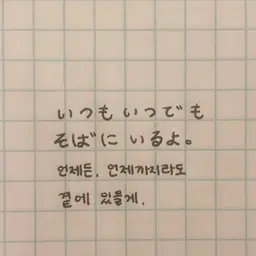 いつもいつでも
そばに いるよ。
언제든, 언제까지라도
곁에 있을게.